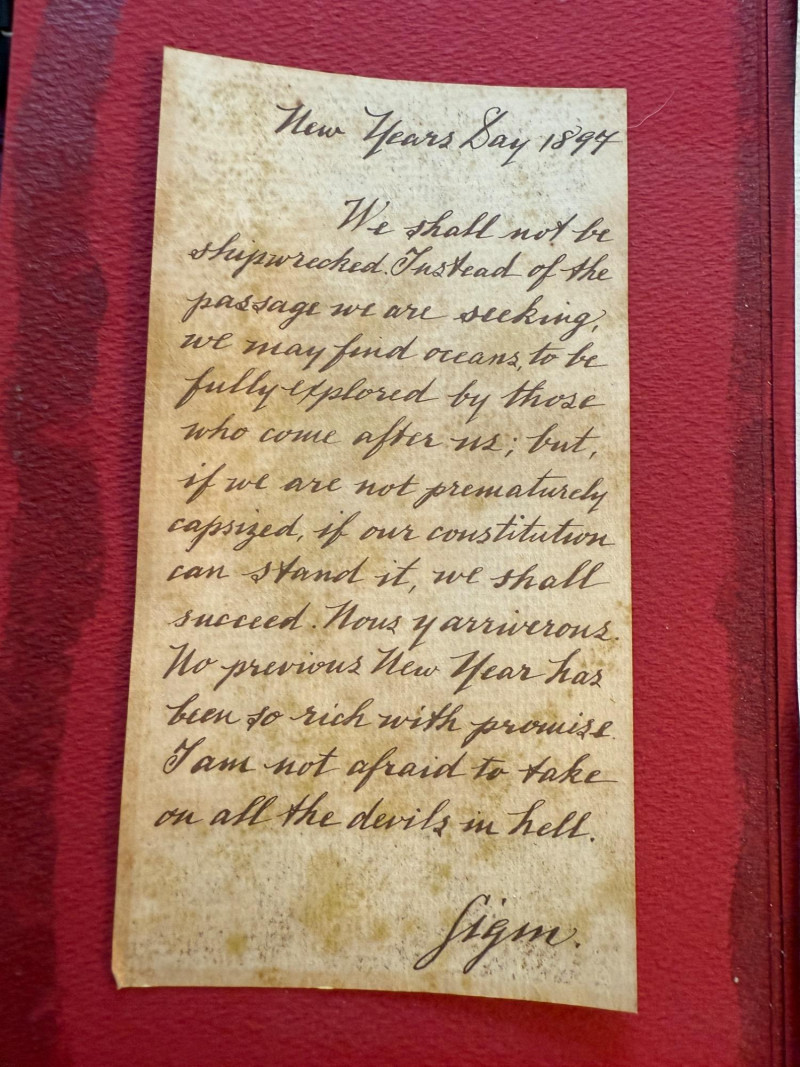 New Years Day 1897
We shall not be
shipwrecked. Instead of the
passage we are seeking,
we may find oceans, to be
fully explored by those
who come after us; but,
if we are not prematurely
capsized, if our constitution
can stand it, we shall
succeed. Nous y arriverons.
No previous New Year has
been so rich with promise.
I am not afraid to take
on all the devils in hell.
Sigm.